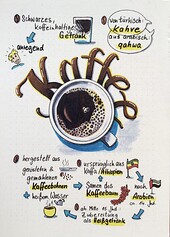 Schwarzes,
koffeinhaltiges
Getränk
anregend
von türkisch:
kahve
aus arabisch:
qahwa
Kaffee
hergestellt aus
gerösteten &
gemahlenen
Kaffeebohnen
heißem Wasser
ursprünglich aus
Kaffa/Äthiopien
Samen des
Kaffeebaum
nach
Arabien
ab Mitte 15. Jhd
Zubereitung
als Heißgetränk